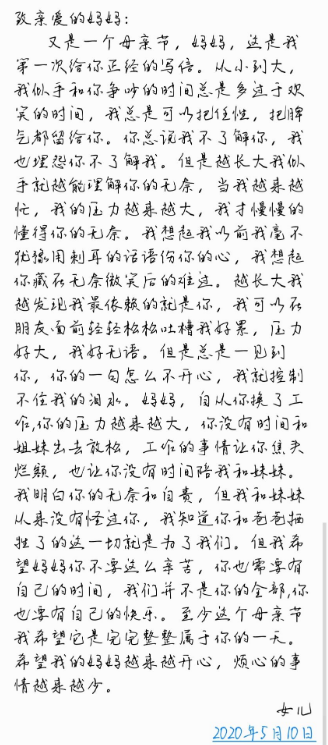 致亲爱的妈妈:
又是一个母亲节，妈妈，这是我
第一次给你正经的写信。从小到大，
我似乎和你争吵的时间总是多过于欢
笑的时间，我总是可以把任性，把脾
气都留给你。你总说我不了解你，我
也埋怨你不了解我。但是越长大我似
乎就越能理解你的无奈，当我越来越
忙，我的压力越来越大，我才慢慢的
懂得你的无奈。我想起我以前我毫不
犹豫用刺耳的话语伤你的心，我想起
你藏在无奈微笑后的难过。越长大我
越发现我最依赖的就是你，我可以在
朋友面前轻轻松松吐槽我好累，压力
好大，我好无语。但是总是一见到
你，你的一句怎么不开心，我就控制
不住我的泪水。妈妈，自从你换了工
作,你的压力越来越大，你没有时间和
姐妹出去放松，工作的事情让你焦头
烂额，也让你没有时间陪我和妹妹。
我明白你的无奈和自责，但我和妹妹
从来没有怪过你，我知道你和爸爸牺
牲了的这一切就是为了我们。但我希
望妈妈你不要这么辛苦，你也需要有
自己的时间，我们并不是你的全部,你
也要有自己的快乐。至少这个母亲节
我希望它是完完整整属于你的一天。
希望我的妈妈越来越开心，烦心的事
情越来越少。
女儿
2020年5月10日